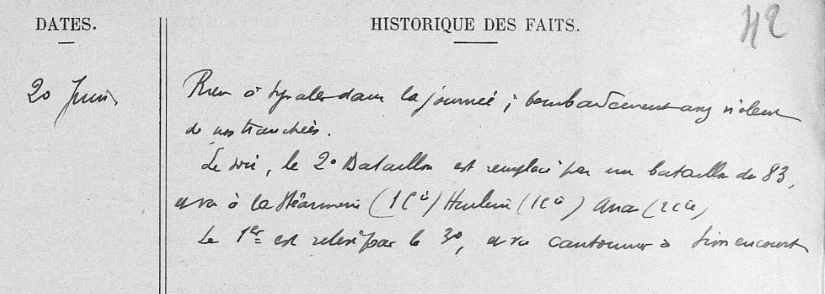 DATES.
HISTORIQUE DES FAITS.
42
20 Juin
Rien à signaler dans la journée ; bombardement assez violent
de nos tranchées.
Le soir, le 2e Bataillon est remplacé par un bataillon du 83,
et va à la (1 Cie) (1 Cie) (2 Cie)
Le 1er est relevé par le 3e, et va cantonner à Simencourt